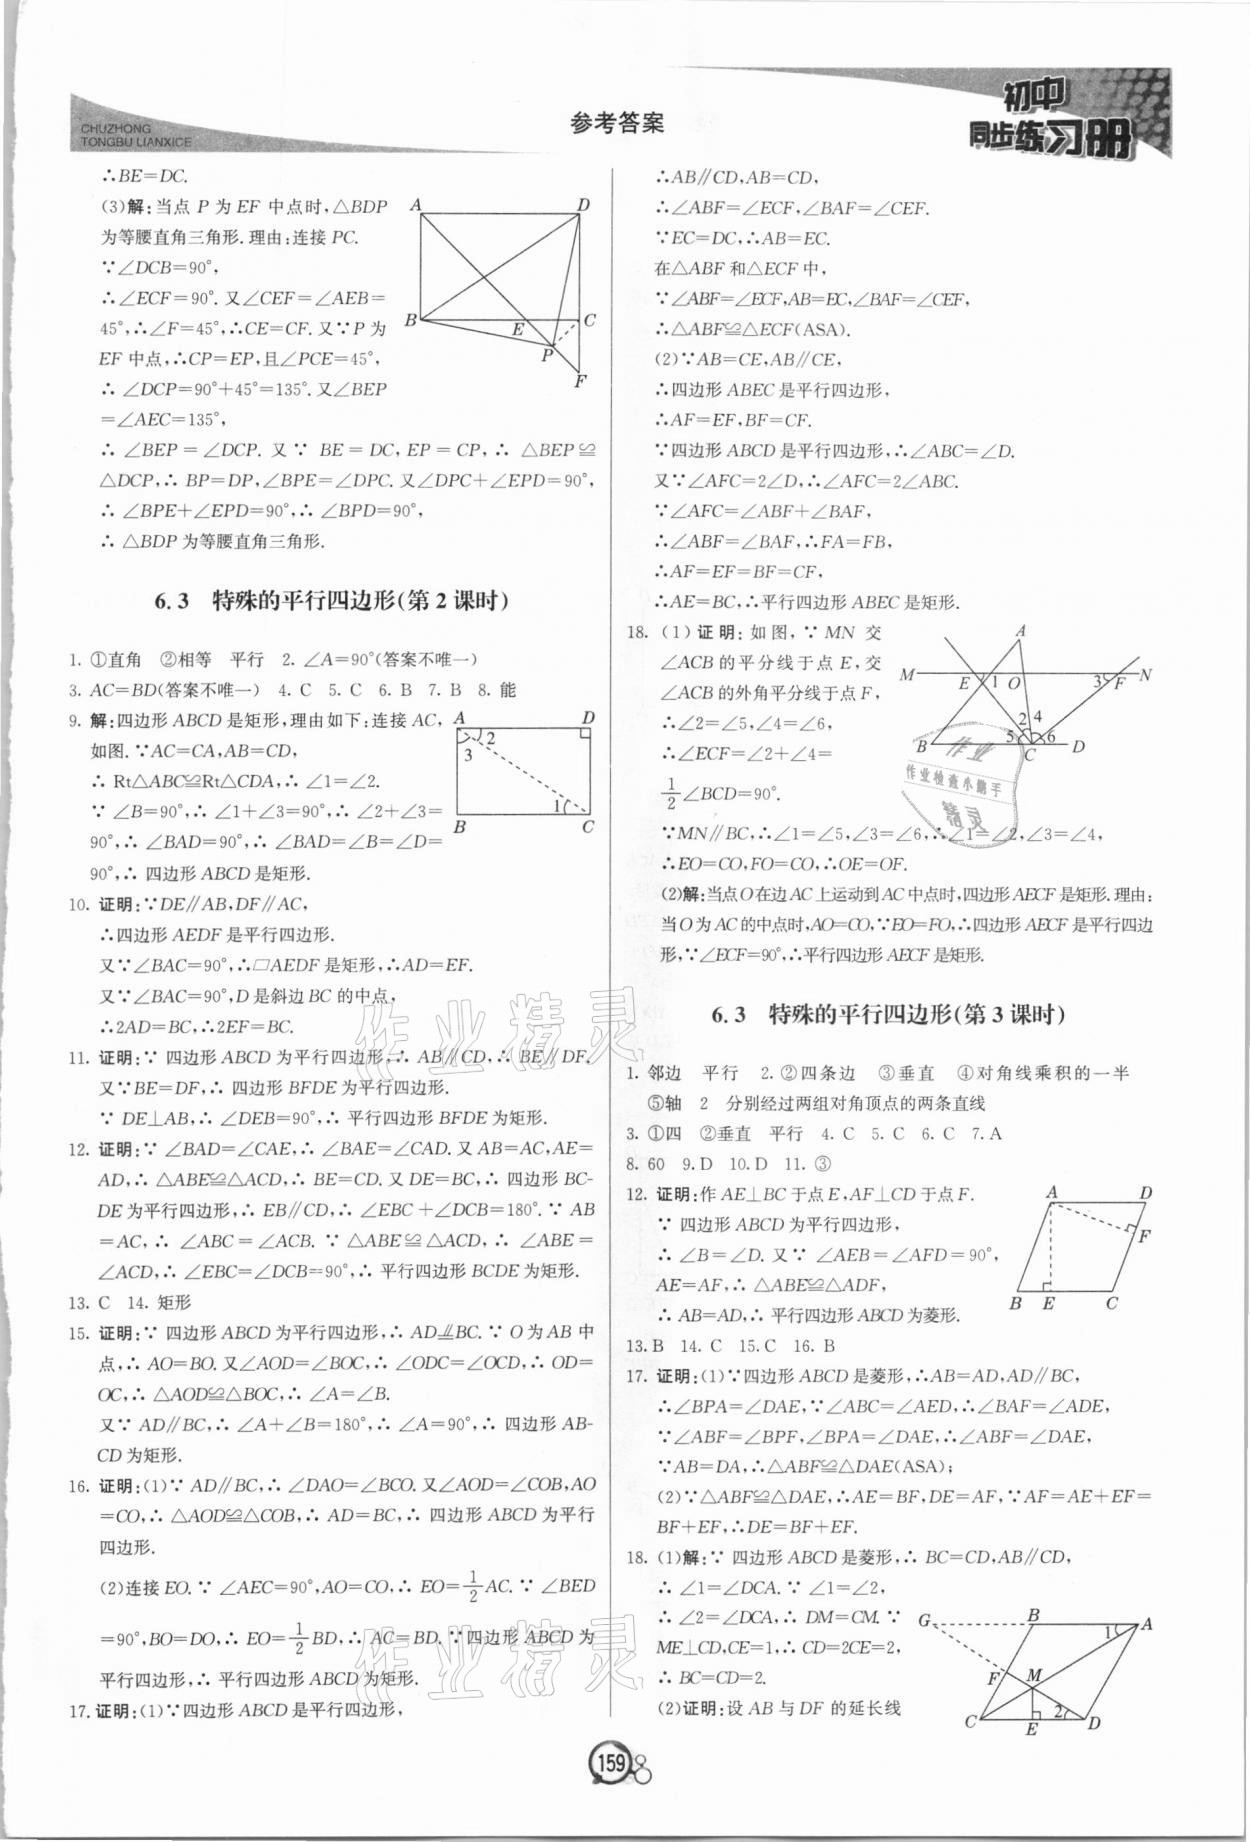 CHUZHONG
TONGBU LIANXICE
参考答案
初中
同步练习册
∴BE=DC.
(3)解:当点 P 为 EF 中点时,△BDP
为等腰直角三角形.理由:连接 PC.
∵∠DCB=90°,
∴∠ECF=90°.又∠CEF=∠AEB=
45°,∴∠F=45°,∴CE=CF.又∵P 为
EF 中点,∴CP=EP,且∠PCE=45°,
∴∠DCP=90°+45°=135°.又∠BEP
=∠AEC=135°,
∴∠BEP=∠DCP.又∵BE=DC,EP=CP,∴△BEP≌
△DCP,∴BP=DP,∠BPE=∠DPC.又∠DPC+∠EPD=90°,
∴∠BPE+∠EPD=90°,∴∠BPD=90°,
∴△BDP 为等腰直角三角形.
A D B E C P F
6.3 特殊的平行四边形(第2课时)
1. ①直角 ②相等 平行 2. ∠A=90°(答案不唯一)
3. AC=BD(答案不唯一) 4. C 5. C 6. B 7. B 8. 能
9. 解:四边形 ABCD 是矩形,理由如下:连接 AC,
如图.∵AC=CA,AB=CD,
∴Rt△ABC≌Rt△CDA,∴∠1=∠2.
∵∠B=90°,∴∠1+∠3=90°,∴∠2+∠3=
90°,∴∠BAD=90°,∴∠BAD=∠B=∠D=
90°,∴四边形 ABCD 是矩形.
A D 2 3 1 B C
10. 证明:∵DE∥AB,DF∥AC,
∴四边形 AEDF 是平行四边形.
又∵∠BAC=90°,∴□AEDF 是矩形,∴AD=EF.
又∵∠BAC=90°,D 是斜边 BC 的中点,
∴2AD=BC,∴2EF=BC.
11. 证明:∵四边形 ABCD 为平行四边形,∴AB∥CD,∴BE∥DF,
又∵BE=DF,∴四边形 BFDE 为平行四边形.
∵DE⊥AB,∴∠DEB=90°,∴平行四边形 BFDE 为矩形.
12. 证明:∵∠BAD=∠CAE,∴∠BAE=∠CAD.又 AB=AC,AE=
AD,∴△ABE≌△ACD,∴BE=CD.又 DE=BC,∴四边形 BC-
DE 为平行四边形,∴EB∥CD,∴∠EBC+∠DCB=180°.∵AB
=AC,∴∠ABC=∠ACB.∵△ABE≌△ACD,∴∠ABE=
∠ACD,∴∠EBC=∠DCB=90°,∴平行四边形 BCDE 为矩形.
13. C 14. 矩形
15. 证明:∵四边形 ABCD 为平行四边形,∴AD⫽BC.∵O 为 AB 中
点,∴AO=BO.又∠AOD=∠BOC,∴∠ODC=∠OCD,∴OD=
OC,∴△AOD≌△BOC,∴∠A=∠B.
又∵AD∥BC,∴∠A+∠B=180°,∴∠A=90°,∴四边形 AB-
CD 为矩形.
16. 证明:(1)∵AD∥BC,∴∠DAO=∠BCO.又∠AOD=∠COB,AO
=CO,∴△AOD≌△COB,∴AD=BC,∴四边形 ABCD 为平行
四边形.
(2)连接 EO.∵∠AEC=90°,AO=CO,∴EO=1/2AC.∵∠BED
=90°,BO=DO,∴EO=1/2BD,∴AC=BD.∵四边形 ABCD 为
平行四边形,∴平行四边形 ABCD 为矩形.
17. 证明:(1)∵四边形 ABCD 是平行四边形,
∴AB∥CD,AB=CD,
∴∠ABF=∠ECF,∠BAF=∠CEF.
∵EC=DC,∴AB=EC.
在△ABF 和△ECF 中,
∵∠ABF=∠ECF,AB=EC,∠BAF=∠CEF,
∴△ABF≌△ECF(ASA).
(2)∵AB=CE,AB∥CE,
∴四边形 ABEC 是平行四边形,
∴AF=EF,BF=CF.
∵四边形 ABCD 是平行四边形,∴∠ABC=∠D.
又∵∠AFC=2∠D,∴∠AFC=2∠ABC.
∵∠AFC=∠ABF+∠BAF,
∴∠ABF=∠BAF,∴FA=FB,
∴AF=EF=BF=CF,
∴AE=BC,∴平行四边形 ABEC 是矩形.
18. (1)证明:如图,∵MN 交
∠ACB 的平分线于点 E,交
∠ACB 的外角平分线于点 F,
∴∠2=∠5,∠4=∠6,
∴∠ECF=∠2+∠4=
1/2∠BCD=90°.
∵MN∥BC,∴∠1=∠5,∠3=∠6,∴∠1=∠2,∠3=∠4,
∴EO=CO,FO=CO,∴OE=OF.
(2)解:当点O在边AC上运动到AC中点时,四边形AECF是矩形.理由:
当O为AC的中点时,AO=CO,∵EO=FO,∴四边形AECF是平行四边
形,∵∠ECF=90°,∴平行四边形AECF是矩形.
A M E 1 O 3 F N 2 4 B 5 C 6 D
作业
作业检查小助手
精灵
6.3 特殊的平行四边形(第3课时)
1. 邻边 平行 2. ②四条边 ③垂直 ④对角线乘积的一半
⑤轴 2 分别经过两组对角顶点的两条直线
3. ①四 ②垂直 平行 4. C 5. C 6. C 7. A
8. 60 9. D 10. D 11. ③
12. 证明:作 AE⊥BC 于点 E,AF⊥CD 于点 F.
∵四边形 ABCD 为平行四边形,
∴∠B=∠D.又∵∠AEB=∠AFD=90°,
AE=AF,∴△ABE≌△ADF,
∴AB=AD,∴平行四边形 ABCD 为菱形.
A D F B E C
13. B 14. C 15. C 16. B
17. 证明:(1)∵四边形 ABCD 是菱形,∴AB=AD,AD∥BC,
∴∠BPA=∠DAE,∵∠ABC=∠AED,∴∠BAF=∠ADE,
∵∠ABF=∠BPF,∠BPA=∠DAE,∴∠ABF=∠DAE,
∵AB=DA,∴△ABF≌△DAE(ASA);
(2)∵△ABF≌△DAE,∴AE=BF,DE=AF,∵AF=AE+EF=
BF+EF,∴DE=BF+EF.
18. (1)解:∵四边形 ABCD 是菱形,∴BC=CD,AB∥CD,
∴∠1=∠DCA.∵∠1=∠2,
∴∠2=∠DCA,∴DM=CM.∵
ME⊥CD,CE=1,∴CD=2CE=2,
∴BC=CD=2.
(2)证明:设 AB 与 DF 的延长线
G B A 1 F M 2 C E D
作业精灵
作业精灵
159